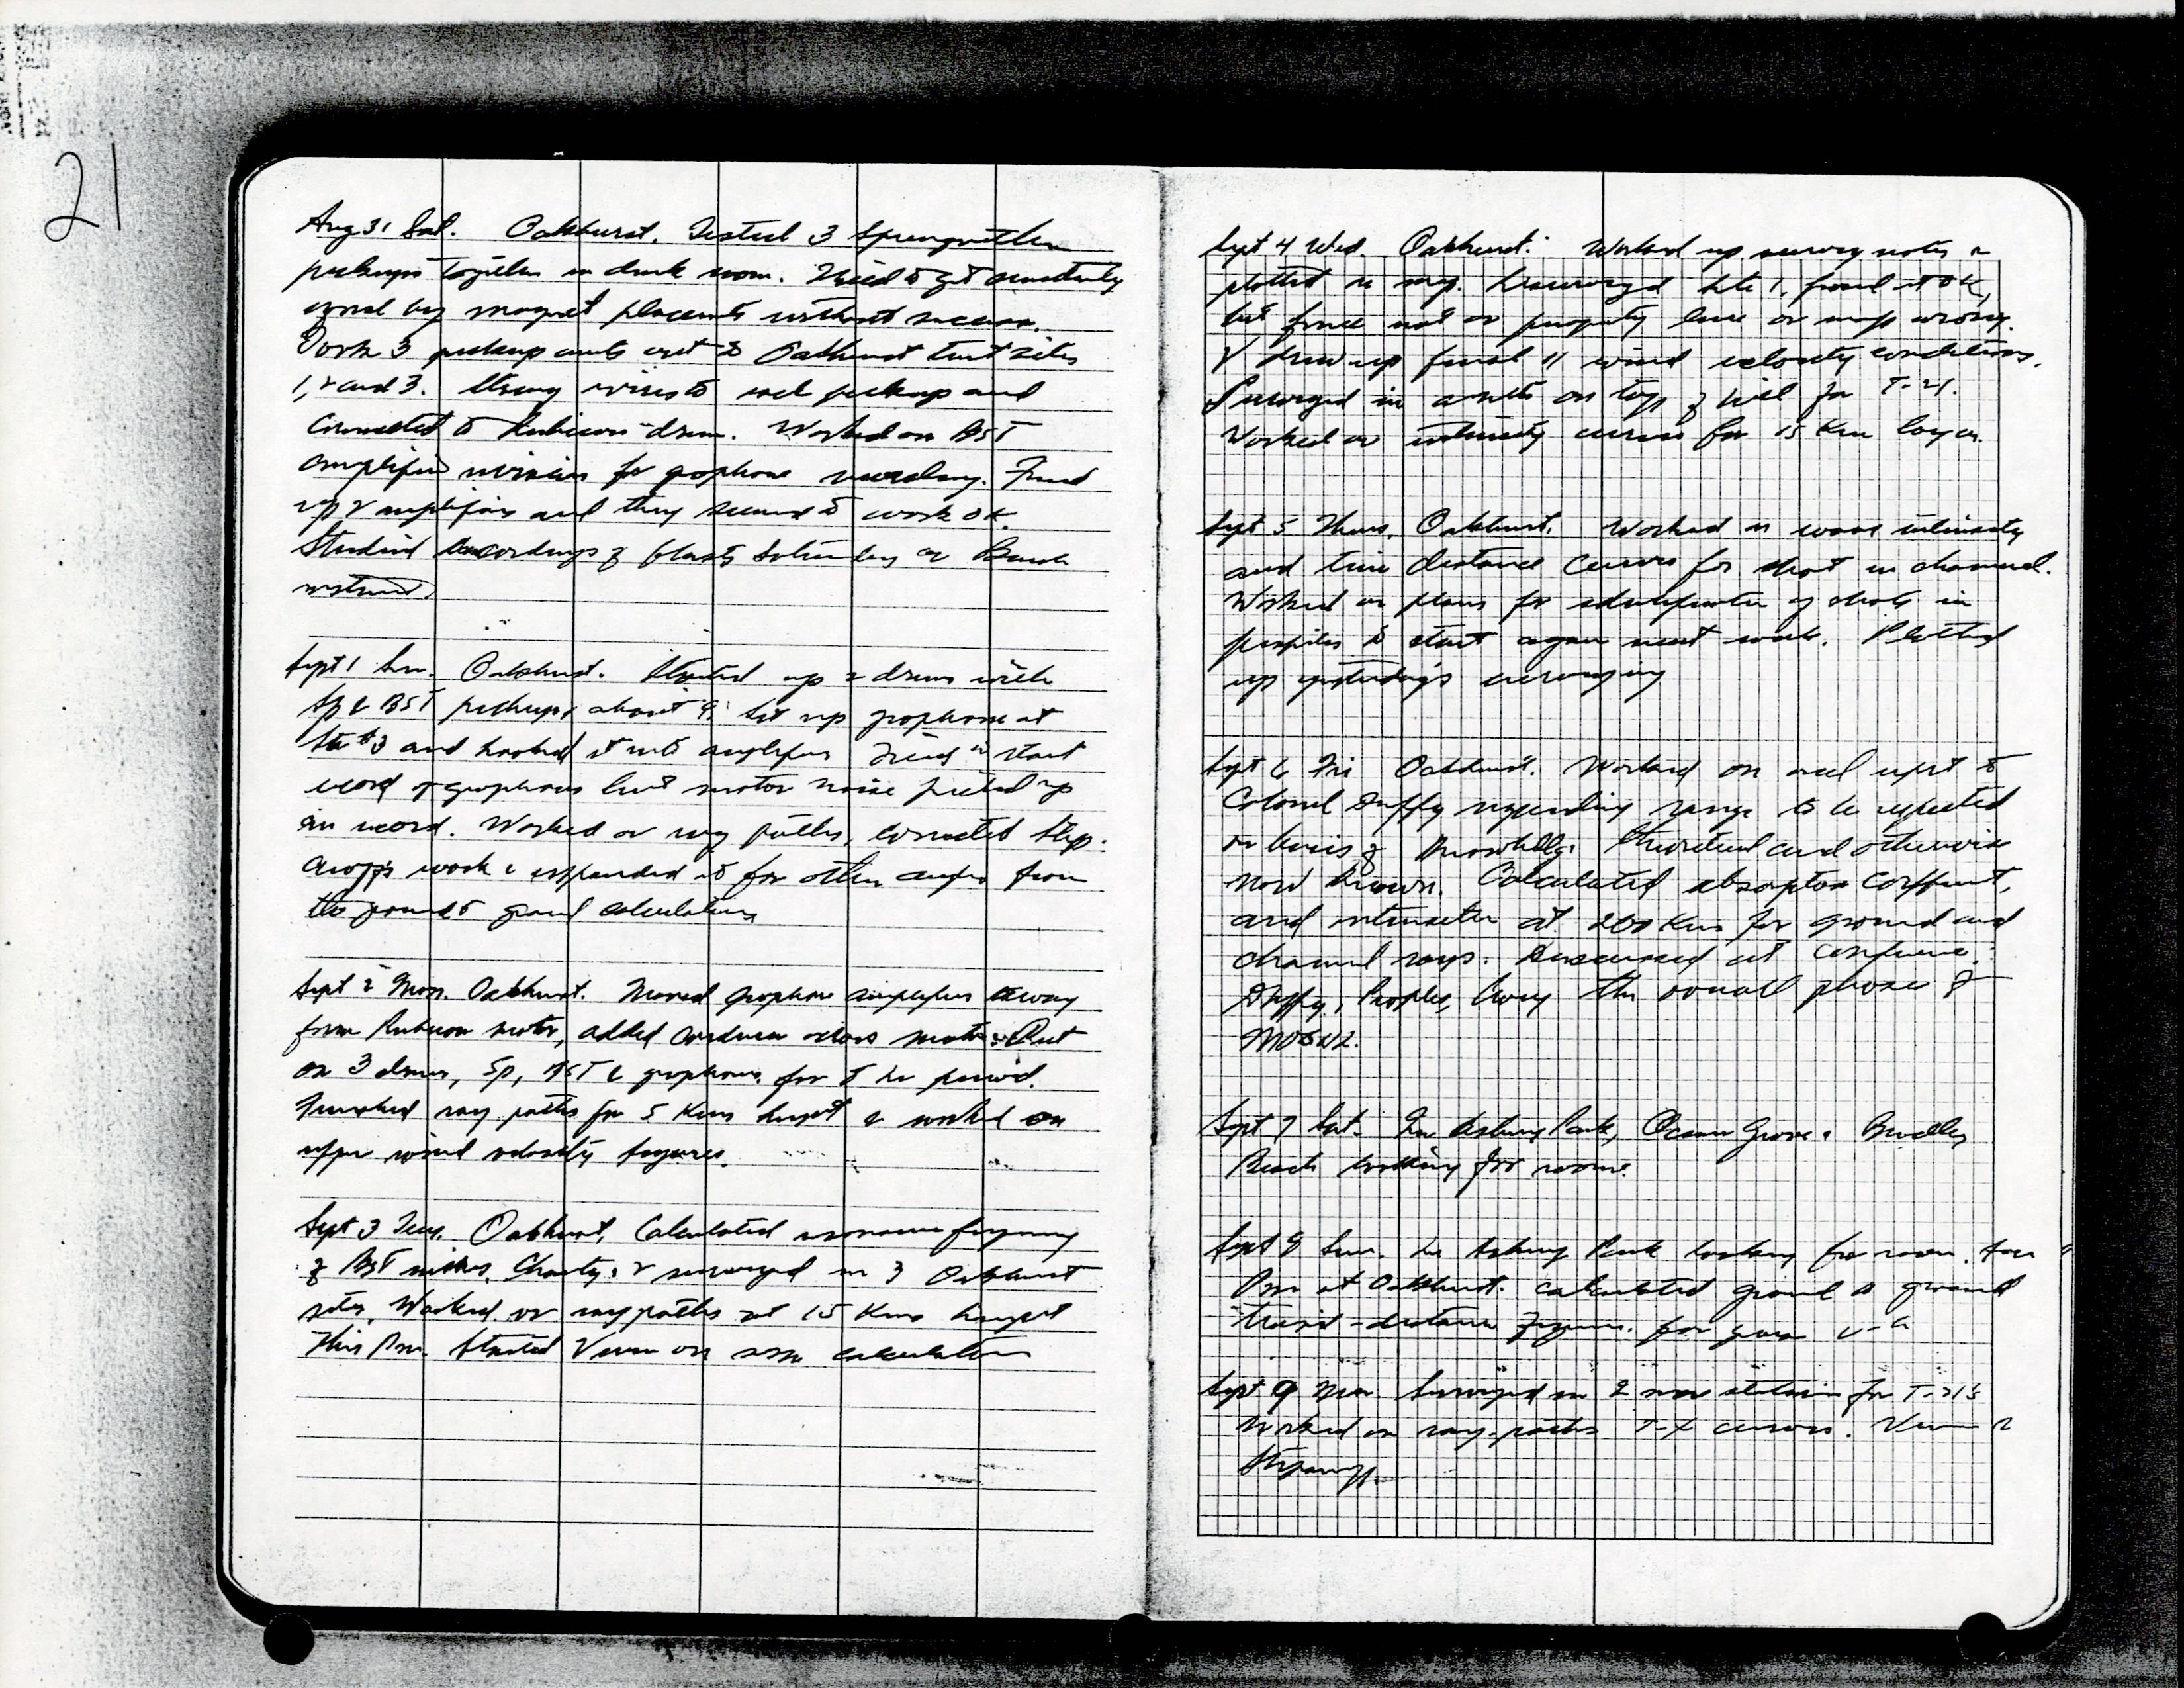 21
Aug 31 Sat. Oakhurst. Tested 3 Sprengnether
pickups together in dark room. Tried to get sensitivity
equal by magnet placements without success.
Took 3 pickup units out to Oakhurst test sites
1, 2 and 3. Strung wires to each pickup and
connected to Rubicon drum. Worked on BST
amplifier revision for geophone recording. Fixed
up 2 amplifiers and they seemed to work OK.
Studied recordings of blasts Saturday on
instrument.
Sept 1 Sun. Oakhurst. Started up 2 drums with
Sp & BST pickups about 9. Set up geophone at
Site #3 and hooked it into amplifier. Tried to start
record of geophone but motor noise picked up
on record. Worked on ray paths, corrected Step-
anoff's work & expanded it for other angles from
the ground to ground calculations
Sept 2 Mon. Oakhurst. Moved geophone amplifier away
from Rubicon motor, added condenser across motor. Put
on 3 drums, Sp, BST & geophone, for hr period.
Finished ray paths for 5 Kms height & worked on
upper wind velocity figures.
Sept 3 Tues. Oakhurst. Calculated resonance frequency
of BST mikes. Charly & I surveyed in 3 Oakhurst
sites. Worked on ray paths at 15 Kms height
this Pm. Started Vivian on some calculations
Sept 4 Wed. Oakhurst. Worked up survey notes &
plotted on map. Resurveyed Site 1, found it OK,
but fence not on property line or map wrong.
drew up final wind velocity conditions.
Surveyed in on top of hill for T-21.
Worked on intensity curves for 15 Km layer.
Sept 5 Thurs. Oakhurst. Worked on wave intensity
and time distance curves for shot in channel.
Worked on plans for identification of shots in
profiles to start again next week. Plotted
up yesterday's surveying
Sept 6 Fri Oakhurst. Worked on oral report to
Colonel Duffy regarding range to be expected
on basis of knowledge theoretical and otherwise
now known. Calculated absorption coefficient,
and intensities at 200 Kms for ground and
channel rays. Discussed at conference:
Duffy, Peoples, Crary the overall phases of
MOGUL.
Sept 7 Sat. In Asbury Park, Ocean Grove & Bradley
Beach looking for rooms.
Sept 8 Sun. In Asbury Park looking for room.
Pm at Oakhurst. Calculated ground to ground
travel-distance figures for
Sept 9 Mon Surveyed in 2 more stations for T-21's
Worked on ray paths T-X curves.
Stepanoff.